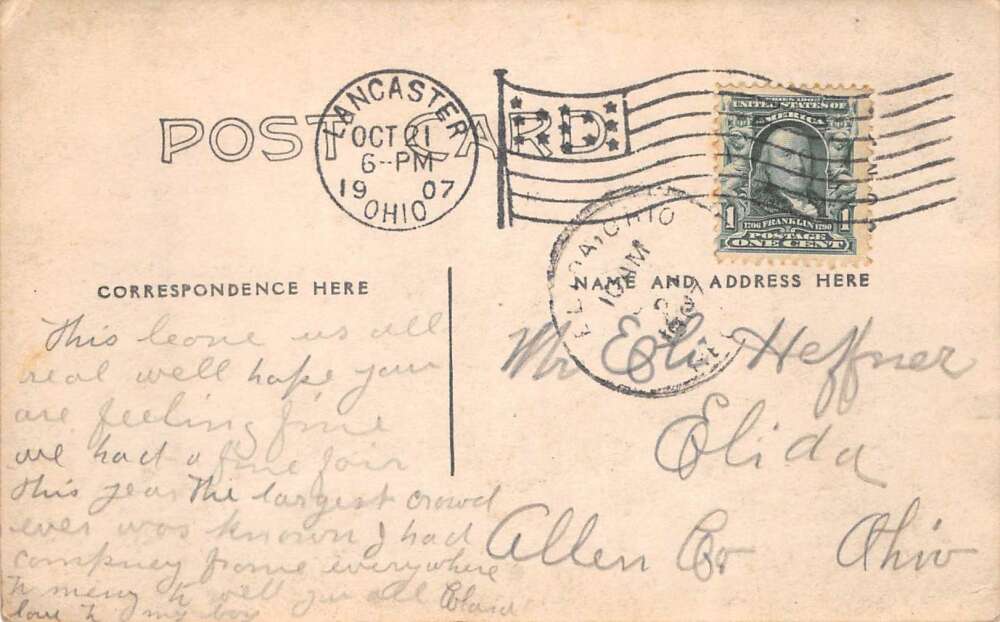 POST CARD
LANCASTER
OCT 21
6-PM
1907
OHIO
SERIES 1902
UNITED STATES OF
AMERICA
1 1706 FRANKLIN 1790 1
POSTAGE
ONE CENT
OHIO
CORRESPONDENCE HERE
NAME AND ADDRESS HERE
This leave us all
real well hope you
are feeling fine
we had a fine fair
this year The largest crowd
ever was known I had
compney frome everywhere
to meny to tell you all
love to my boy
Mr Eli Heffner
Elida
Allen Co Ohio